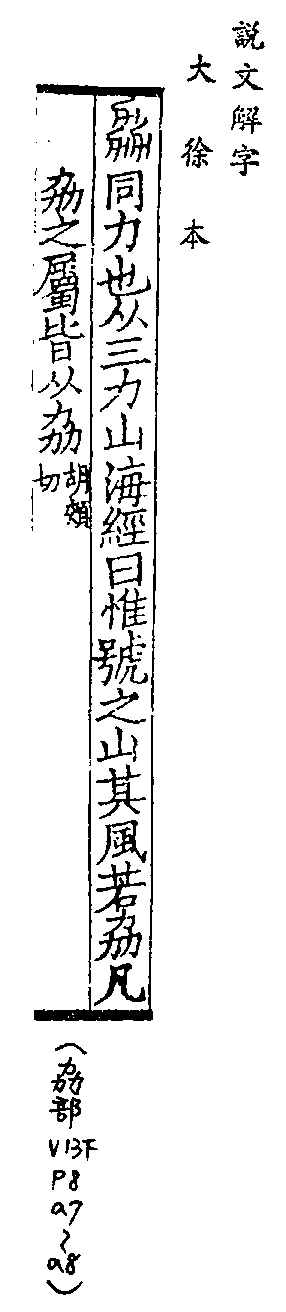 說文解字
大徐本
劦同力也从三力山海經曰惟號之山其風若劦凡
劦之屬皆从劦胡頰切
(劦部V13下P8a7~a8)